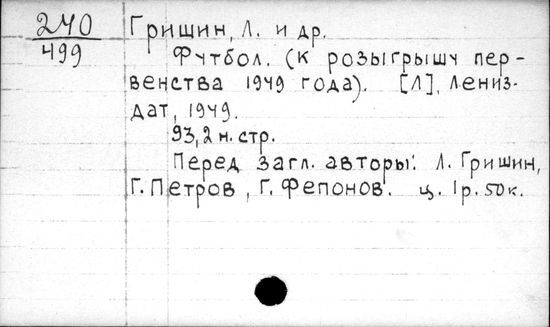 240
499
Гришин, Л. и др.
Футбол. (К розыгрышу пер-
венства 1949 года). [Л], Лениз-
дат, 1949.
93,2 н. стр.
Перед загл. авторы: Л. Гришин,
Г. Петров, Г. Фепонов. ц. 1р. 50к.